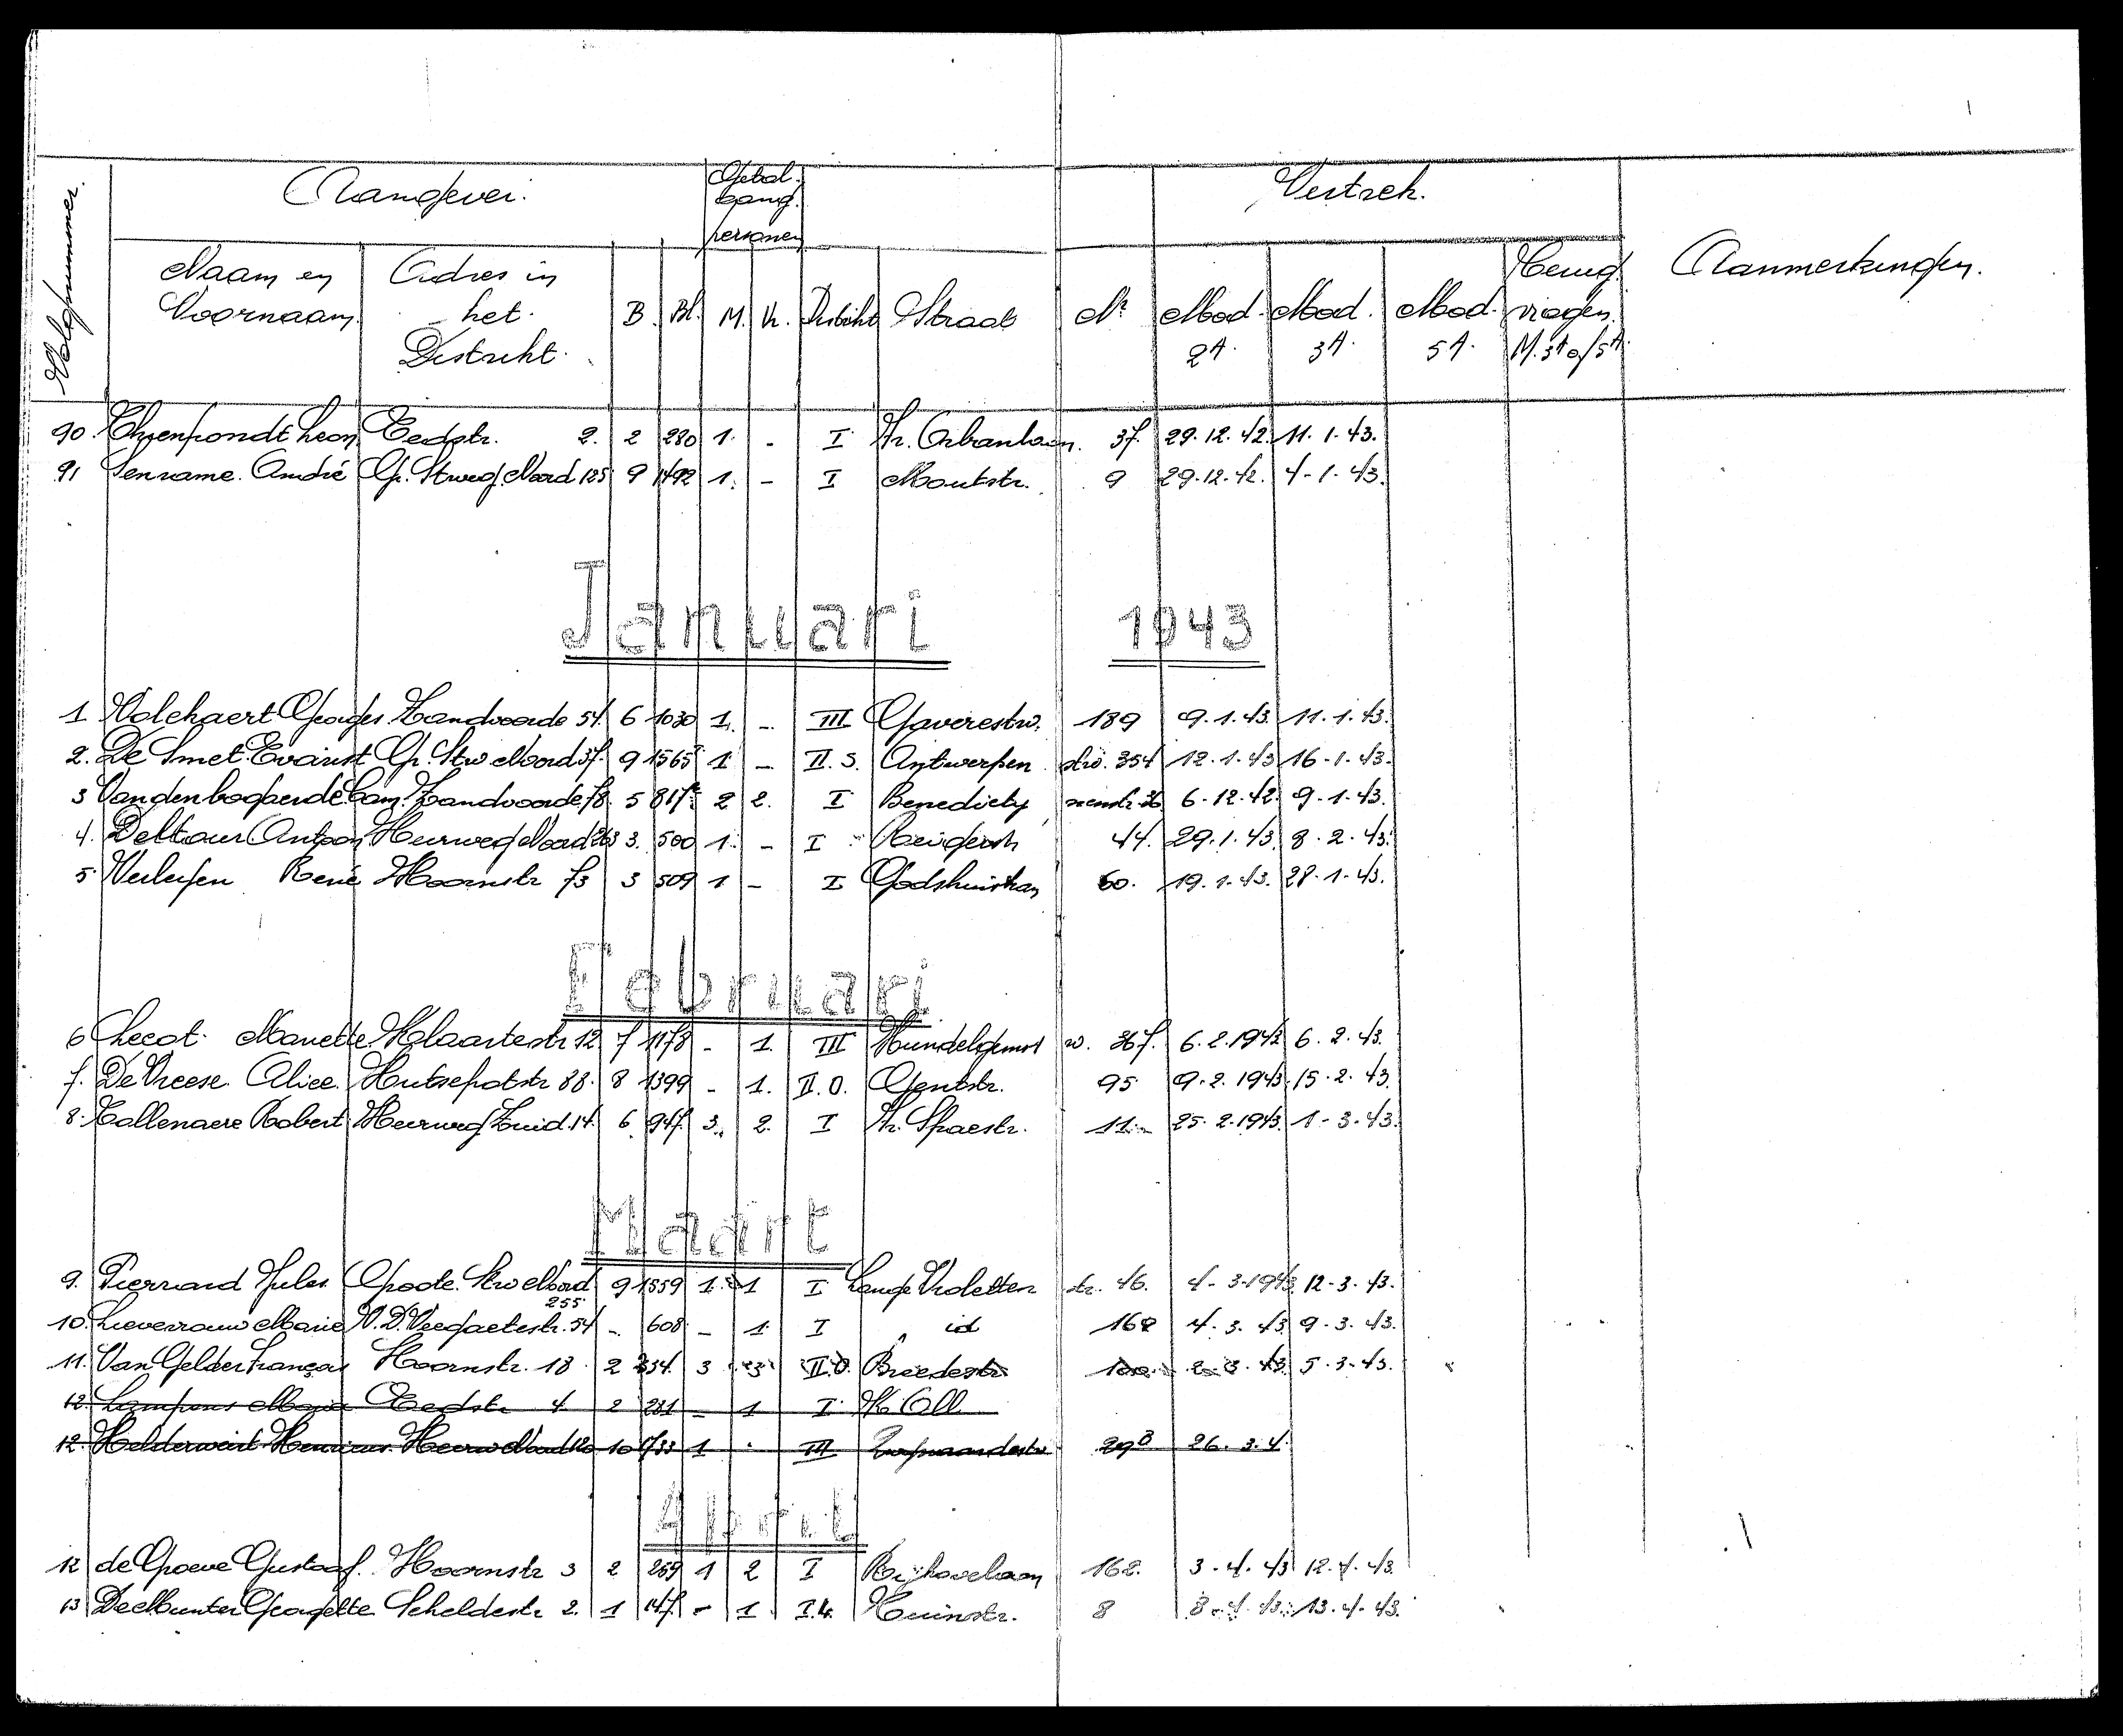 Volgnummer.
Aangever. Getal. bang. personen Vertrek. Aanmerkingen.
Naam en Voornaam. Adres in het District. B. Bl. M. Vr. District Straat Nr Mod. 2A. Mod. 3A. Mod. 5A. Terug vragen. M. 3A of 5A.
90. Leon Eedstr. 2. 2 280 1. - I 37. 29.12.42. 11.1.43.
91 Senrame. André Gr. Stweg. Noord 125 9 1492 1. - I Moutstr. 9 29.12.42. 4-1-43.
Januari 1943
1 Volckaert Georges Zandvoorde 54. 6 1030 1. - III Gaverestw. 189 9.1.43. 11.1.43.
2. De Smet Evarist Gr. Stw Noord 37. 9 1565 1 - II.S. Antwerpen stw. 354 12.1.43 16-1-43.
3 Vandenbogaerde Cam. Zandvoorde 78. 5 817 2 2. I 36 6-12-42. 9-1-43.
4. Deltour Antoon Heerweg Noord 263 3. 500 1. - I 44. 29.1.43. 8.2.43.
5 René Hoornstr 73 3 509 1 - I Godshuis 60. 19.1.43. 28.1-43.
Februari
6 Lecot. Mariette. 12. 7 1178 - 1. III Hundelgemst w. 367. 6.2.1943 6.2.43.
7. De Vreese Alice. Hutsepotstr 88. 8 1399 - 1. II.O. Gentstr. 95 9.2.1943. 15.2.43.
8. Tollenaere Robert Heerweg Zuid. 14. 6. 947. 3. 2. I Spaestr. 11.- 25.2.1943. 1-3-43.
Maart
9. Pierrard Jules Groote Stw Noord 255 9 1559 1. 1 I Lange Violetten str. 46. 4-3-1943. 12-3-43.
10. Lieverouw Marie V.D. 54 - 608 - 1. I id 168 4.3.43. 9.3.43.
11. Van Gelder François Hoornstr. 18. 2 254. 3 3 II.O. Breedestr 2.3.43. 5.3-43.
12. Lampens Maria Eedstr 4 2 281 - 1 I
12. Helderweirt 10 1733 1 - III 298 26.3.4.
April
12 de Groeve Gustaaf. Hoornstr 3 2 269 1 2 I Rijhovelaan 162. 3-4-43 12.4-43.
13 De Munter Georgette Scheldestr 2. 1 147. - 1. Tuinstr. 8 8-4-43. 13.4-43.